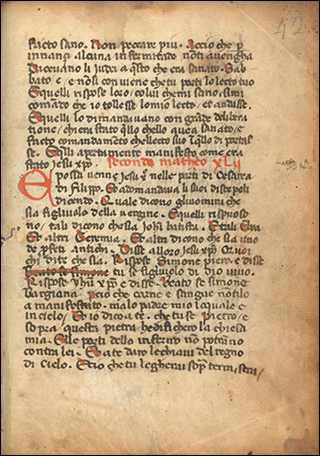 42
facto sano. Non peccare piu. Accio che p
innançi alcuna infermitade non ti avengha
Diceuano li Iudei a q̄sto che era sanato. Sab
bato e. e nō si conuiene che tu porti lo lecto tuo
Equelli rispose loro. colui che mi sano, si mi
comādo che io tollesse lo mio lecto. et andasse.
Equelli lo dimandauano con grāde delibera
tione. chi era stato q̄llo che llo auea sanato. e
facto comandamēto che llecto suo

sse. Egli apertamente manifesto come era
stato Iesu xp̄o. Secondo matheo XLII
E possa venne Iesu xp̄o nelle parti di Cesaria
di Filippo. Et adomandaua li suoi discepoli
dicendo. Quale dicono gluomini che
sia figluolo della vergine. Equelli rispuoso
no. tali dicono che sia Iohi batista. Et tali Elia
Et altri Geremia. Et altri dicono che sia uno
de p̄feti antichi. Disse alloro Iesu xp̄o. Et uoi
chi dite che sia. Rispose Simone piero. e disse
tu se figluolo di dio uiuo.
Rispose Yhū xp̄o e disse. Beato se simone
bargiana. Accio che carne e sangue nō tilo
a manifestato. ma lo padre mio lo quale e
in cielo. Et io dico a te. che tu se Pietro. e
sopra questa pietra hedifichero la chiesa
mia. Elle porti dello inferno nō potrāno
contra lei. Et a te daro le chiaui del regno
di cielo. Et cio che tu legherai sop̄ terra, sera